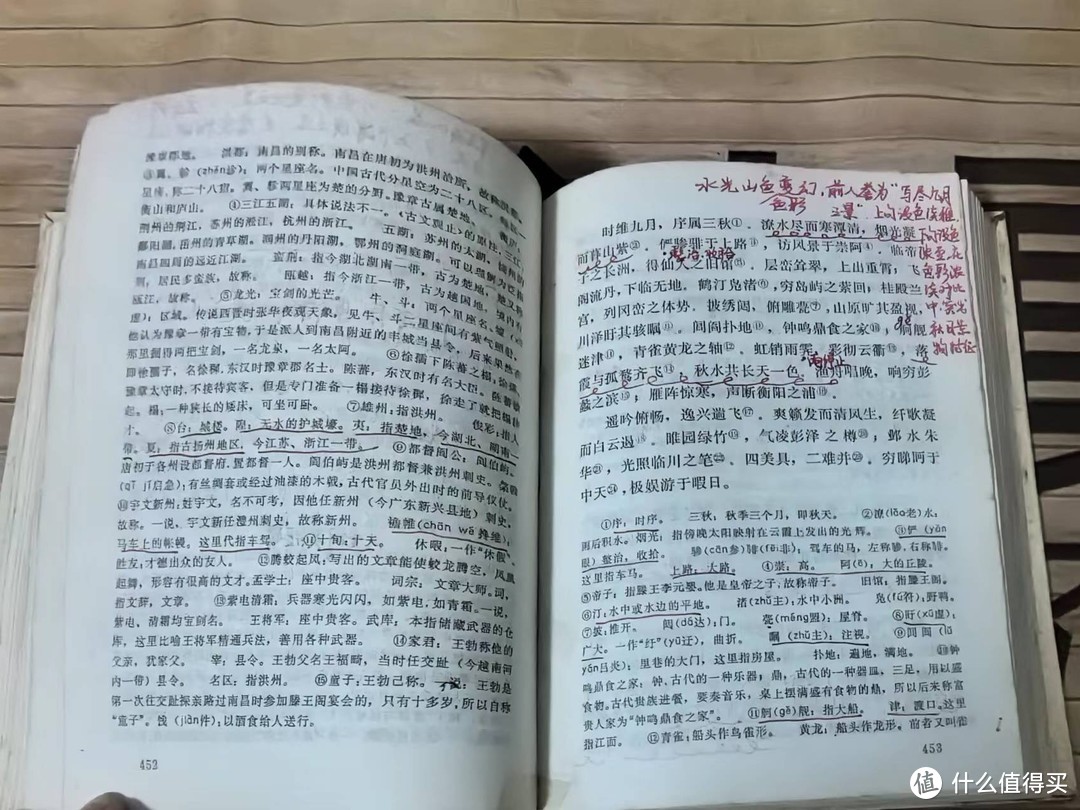 豫章郡地。 洪都：南昌的别称。南昌在唐初为洪州治所，故称洪都。
③翼、轸（zhěn诊）：两个星座名。中国古代分星空为二十八区，
星座，称二十八宿。翼、轸两星座为楚的分野，豫章古属楚地。
衡山和庐山。 ④三江五湖：具体说法不一。《古文观止》的原注：三江：
荆州的荆江，苏州的淞江，杭州的浙江。 五湖：苏州的太湖，
鄱阳湖，岳州的青草湖，润州的丹阳湖，鄂州的洞庭湖。可以理解为
南昌四周的远近江湖。 蛮荆：指今湖北湖南一带，古为楚地。
荆，居民多蛮族，故称。 瓯越：指今浙江一带，古为越国地，
瓯江，故称。 ⑤龙光：宝剑的光芒。 牛、斗：两个星座名。墟（xū
虚）：区域。传说西晋时张华夜观天象，见牛、斗二星座间有紫气照射，
他认为豫章一带有宝物，于是派人到南昌附近的丰城当县令，后来果然在
那里掘得两把宝剑，一名龙泉，一名太阿。 ⑥徐孺下陈蕃之榻：徐孺，
即徐孺子，名徐稚，东汉时豫章郡名士。陈蕃，东汉时有名大臣。陈蕃
豫章太守时，不接待宾客，但是专门准备一榻接待徐稚，徐走了就把榻
起。榻：一种狭长的矮床，可坐可卧。 ⑦雄州：指洪州。 俊彩：指人
才。 ⑧台：城楼。隍：无水的护城壕。夷：指楚地，今湖北、湖南一
带。夏：指古扬州地区，今江苏、浙江一带。 ⑨都督阎公：阎伯屿。
唐初于各州设都督府，置都督一人。阎伯屿是洪州都督兼洪州刺史。棨戟
（qǐ jǐ启急）：有丝绸套或经过油漆的木戟，古代官员外出时的前导仪仗。
⑩宇文新州：姓宇文，名不可考，因他任新州（今广东新兴县地）刺史，
故称。一说，宇文新任澧州刺史，故称新州。 襜帷（chān wéi搀维）：
马车上的帐幔，这里代指车驾。 ⑪十旬：十天。 休暇：一作“休假”。
胜友：才德出众的友人。 ⑫腾蛟起凤：写出的文章能使蛟龙腾空，凤凰
起舞，形容有很高的文才。孟学士：座中贵客。 词宗：文章大师。词，
指文辞，文章。 ⑬紫电清霜：兵器寒光闪闪，如紫电，如青霜。一说，
紫电、清霜均宝剑名。 王将军：座中贵客。武库：本指储藏武器的仓
库，这里比喻王将军精通兵法，善用各种武器。 ⑭家君：王勃称他的
父亲，我家父。 宰：县令。王勃父名王福畤，当时任交趾（今越南河
内一带）县令。 名区：指洪州。 ⑮童子：王勃己称。一说：王勃是
第一次往交趾探亲路过南昌时参加滕王阁宴会的，只有十多岁，所以自称
“童子”。饯（jiàn件）：以酒食给人送行。
452
水光山色变幻，前人誉为“写尽九月
之景”
时维九月，序属三秋①。潦水尽而寒潭清，烟光凝
而暮山紫②。俨骖騑于上路③，访风景于崇阿④。临帝
子之长洲，得仙人之旧馆⑤。层峦耸翠，上出重霄；飞
阁流丹，下临无地。鹤汀凫渚⑥，穷岛屿之萦回；桂殿兰
宫，列冈峦之体势。披绣闼，俯雕甍⑦，山原旷其盈视，
川泽盱其骇瞩⑧。闾阎扑地⑨，钟鸣鼎食之家⑩，舸舰
迷津⑪，青雀黄龙之轴⑫。虹销雨霁，彩彻云衢⑬，落
霞与孤鹜齐飞⑭，秋水共长天一色。渔舟唱晚，响穷彭
蠡之滨⑮；雁阵惊寒，声断衡阳之浦⑯。
遥吟俯畅，逸兴遄飞⑰。爽籁发而清风生，纤歌凝
而白云遏⑱。睢园绿竹⑲，气凌彭泽之樽⑳；邺水朱
华㉑，光照临川之笔㉒。四美具，二难并㉓。穷睇眄于
中天㉔，极娱游于暇日。
①序：时序。 三秋，秋季三个月，即秋天。 ②潦（lǎo老）水：
雨后积水。烟光：指傍晚太阳映射在云霞上发出的光辉。 ③俨（yǎn
眼）整治，收拾。 骖（cān参）騑（fēi非），驾车的马，左称骖，右称騑，
这里指车马。 上路：大路。 ④崇：高。 阿（ē），大的丘陵。
⑤帝子：指滕王李元婴。他是皇帝之子，故称帝子。 旧馆：指滕王阁。
⑥汀：水中或水边的平地。 渚（zhǔ主）：水中小洲。 凫（fú符）：野鸭。
⑦披：推开。 闼（dá达）：门。 甍（méng盟）：屋脊。 ⑧盱（xū虚）：
广大。一作“纡”（yū迂），曲折。 瞩（zhǔ主）：注视。 ⑨闾阎（lǘ
yán吕炎）：里巷的大门，这里指房屋。 扑地：遍地，满地。 ⑩钟
鸣鼎食之家：钟，古代的一种乐器；鼎，古代的一种器皿，三足，用以盛
食物。古代贵族进餐，要奏音乐，桌上摆满盛有食物的鼎，所以后来称富
贵人家为“钟鸣鼎食之家”。 ⑪舸（gě）舰：指大船。 津：渡口。这里
指江面。 ⑫青雀：船头作鸟雀形。 黄龙：船头作龙形。前者又叫雀
453
值 什么值得买